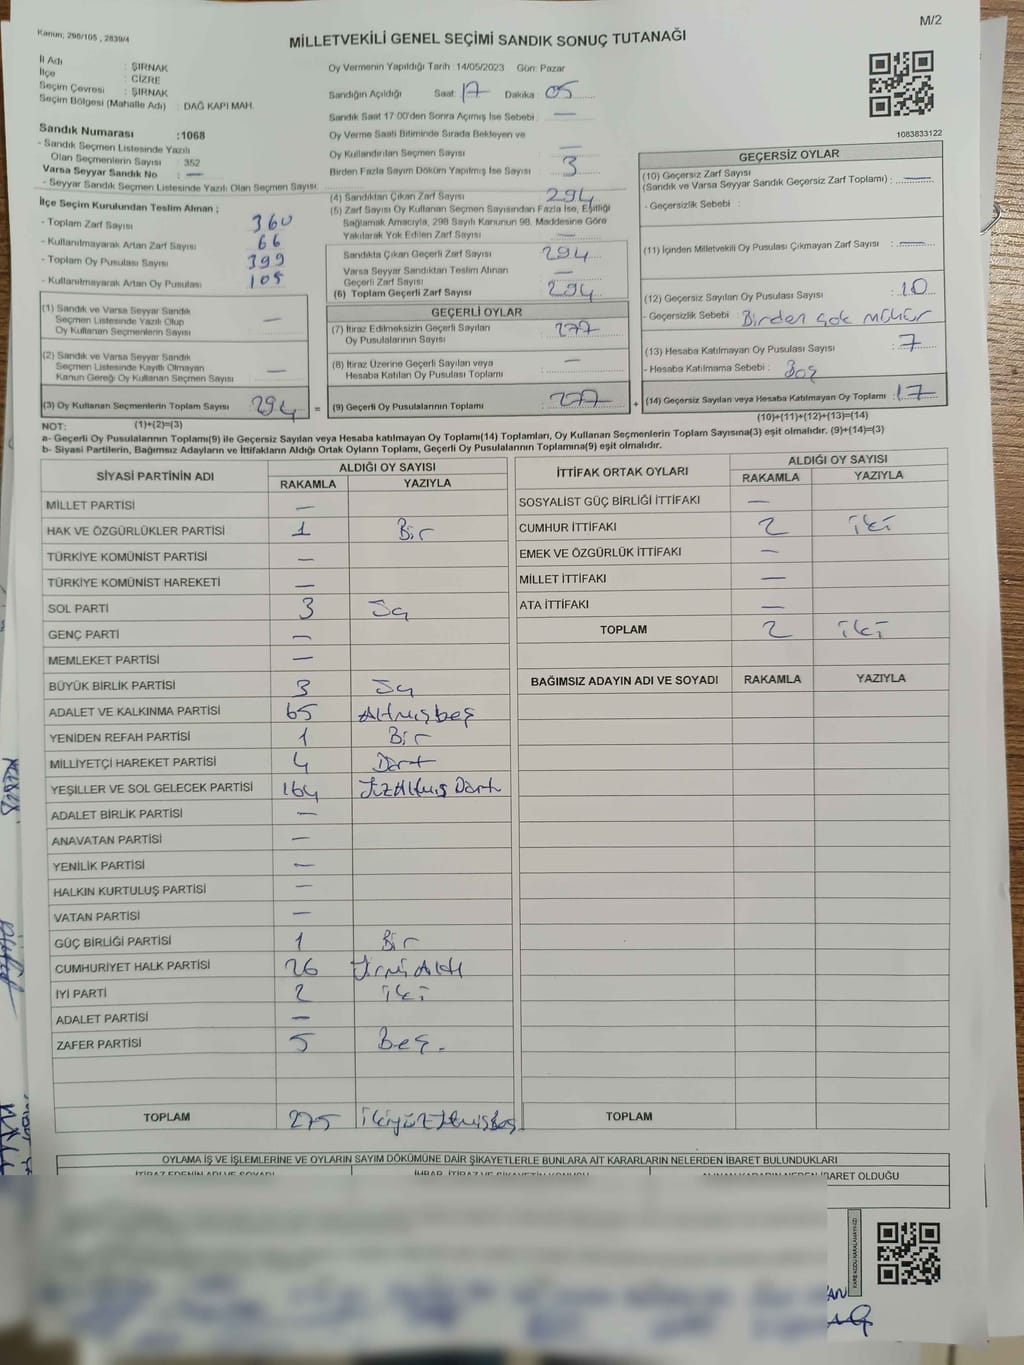 M/2
Kanun; 298/105 , 2839/4
MİLLETVEKİLİ GENEL SEÇİMİ SANDIK SONUÇ TUTANAĞI
İl Adı : ŞIRNAK
İlçe : CİZRE
Seçim Çevresi : ŞIRNAK
Seçim Bölgesi (Mahalle Adı) : DAĞ KAPI MAH.
Sandık Numarası :1068
- Sandık Seçmen Listesinde Yazılı
Olan Seçmenlerin Sayısı : 352
Varsa Seyyar Sandık No : —
- Seyyar Sandık Seçmen Listesinde Yazılı Olan Seçmen Sayısı:
İlçe Seçim Kurulundan Teslim Alınan ;
- Toplam Zarf Sayısı 360
- Kullanılmayarak Artan Zarf Sayısı 66
- Toplam Oy Pusulası Sayısı 399
- Kullanılmayarak Artan Oy Pusulası 105
(1) Sandık ve Varsa Seyyar Sandık
Seçmen Listesinde Yazılı Olup
Oy Kullanan Seçmenlerin Sayısı : —
(2) Sandık ve Varsa Seyyar Sandık
Seçmen Listesinde Kayıtlı Olmayan
Kanun Gereği Oy Kullanan Seçmen Sayısı : —
(3) Oy Kullanan Seçmenlerin Toplam Sayısı : 294 =
(1)+(2)=(3)
Oy Vermenin Yapıldığı Tarih :14/05/2023 Gün: Pazar
Sandığın Açıldığı Saat: 17 Dakika : 05
Sandık Saat 17.00'den Sonra Açılmış İse Sebebi : —
Oy Verme Saati Bitiminde Sırada Bekleyen ve
Oy Kullandırılan Seçmen Sayısı : —
Birden Fazla Sayım Döküm Yapılmış İse Sayısı : 3
(4) Sandıktan Çıkan Zarf Sayısı : 294
(5) Zarf Sayısı Oy Kullanan Seçmen Sayısından Fazla İse, Eşitliği
Sağlamak Amacıyla, 298 Sayılı Kanunun 98. Maddesine Göre
Yakılarak Yok Edilen Zarf Sayısı : —
Sandıkta Çıkan Geçerli Zarf Sayısı : 294
Varsa Seyyar Sandıktan Teslim Alınan
Geçerli Zarf Sayısı : —
(6) Toplam Geçerli Zarf Sayısı : 294
GEÇERLİ OYLAR
(7) İtiraz Edilmeksizin Geçerli Sayılan
Oy Pusulalarının Sayısı : 277
(8) İtiraz Üzerine Geçerli Sayılan veya
Hesaba Katılan Oy Pusulası Toplamı : —
(9) Geçerli Oy Pusulalarının Toplamı : 277 +
1083833122
GEÇERSİZ OYLAR
(10) Geçersiz Zarf Sayısı
(Sandık ve Varsa Seyyar Sandık Geçersiz Zarf Toplamı) : —
- Geçersizlik Sebebi :
(11) İçinden Milletvekili Oy Pusulası Çıkmayan Zarf Sayısı : —
(12) Geçersiz Sayılan Oy Pusulası Sayısı : 10
- Geçersizlik Sebebi : Birden çok mühür
(13) Hesaba Katılmayan Oy Pusulası Sayısı : 7
- Hesaba Katılmama Sebebi : Boş
(14) Geçersiz Sayılan veya Hesaba Katılmayan Oy Toplamı : 17
(10)+(11)+(12)+(13)=(14)
NOT:
a- Geçerli Oy Pusulalarının Toplamı(9) ile Geçersiz Sayılan veya Hesaba katılmayan Oy Toplamı(14) Toplamları, Oy Kullanan Seçmenlerin Toplam Sayısına(3) eşit olmalıdır. (9)+(14)=(3)
b- Siyasi Partilerin, Bağımsız Adayların ve İttifakların Aldığı Ortak Oyların Toplamı, Geçerli Oy Pusulalarının Toplamına(9) eşit olmalıdır.
SİYASİ PARTİNİN ADI ALDIĞI OY SAYISI
RAKAMLA YAZIYLA
MİLLET PARTİSİ —
HAK VE ÖZGÜRLÜKLER PARTİSİ 1 Bir
TÜRKİYE KOMÜNİST PARTİSİ —
TÜRKİYE KOMÜNİST HAREKETİ —
SOL PARTİ 3 Üç
GENÇ PARTİ —
MEMLEKET PARTİSİ —
BÜYÜK BİRLİK PARTİSİ 3 Üç
ADALET VE KALKINMA PARTİSİ 65 Altmışbeş
YENİDEN REFAH PARTİSİ 1 Bir
MİLLİYETÇİ HAREKET PARTİSİ 4 Dört
YEŞİLLER VE SOL GELECEK PARTİSİ 164 YüzAltmış Dört
ADALET BİRLİK PARTİSİ —
ANAVATAN PARTİSİ —
YENİLİK PARTİSİ —
HALKIN KURTULUŞ PARTİSİ —
VATAN PARTİSİ —
GÜÇ BİRLİĞİ PARTİSİ 1 Bir
CUMHURİYET HALK PARTİSİ 26 Yirmi Altı
İYİ PARTİ 2 iki
ADALET PARTİSİ —
ZAFER PARTİSİ 5 Beş.
TOPLAM 275 ikiyüzYetmişbeş
İTTİFAK ORTAK OYLARI ALDIĞI OY SAYISI
RAKAMLA YAZIYLA
SOSYALİST GÜÇ BİRLİĞİ İTTİFAKI —
CUMHUR İTTİFAKI 2 iki
EMEK VE ÖZGÜRLÜK İTTİFAKI —
MİLLET İTTİFAKI —
ATA İTTİFAKI —
TOPLAM 2 iki
BAĞIMSIZ ADAYIN ADI VE SOYADI RAKAMLA YAZIYLA
TOPLAM
OYLAMA İŞ VE İŞLEMLERİNE VE OYLARIN SAYIM DÖKÜMÜNE DAİR ŞİKAYETLERLE BUNLARA AİT KARARLARIN NELERDEN İBARET BULUNDUKLARI
İTİRAZ EDENİN ADI VE SOYADI İHBAR, İTİRAZ VE ŞİKAYETİN KONUSU ALINAN KARARIN NEDEN İBARET OLDUĞU